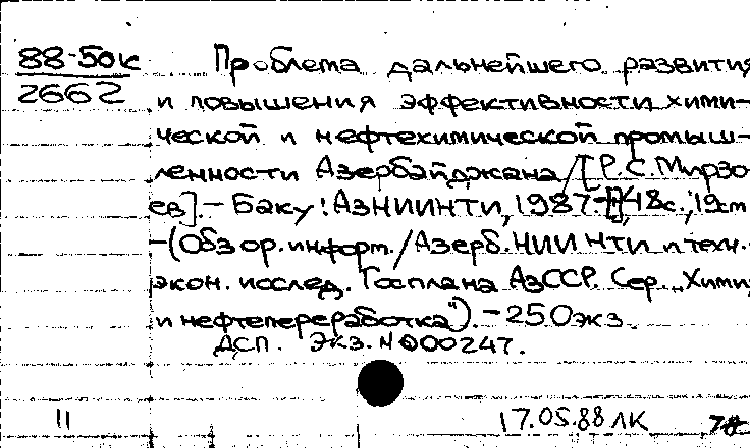 88-50к
2662
Проблема дальнейшего развития
и повышения эффективности хими-
ческой и нефтехимической промыш-
ленности Азербайджана / [Р.С. Мирзо-
ев]. - Баку : АзНИИНТИ, 1987. - 48с.; 19cm
- (Обзор. информ. / Азерб. НИИ НТИ и техн.-
экон. исслед. Госплана АзССР. Сер. „Химия
и нефтепереработка"). - 250экз.
ДСП. Экз. N 000247.
11
17.05.88 ЛК